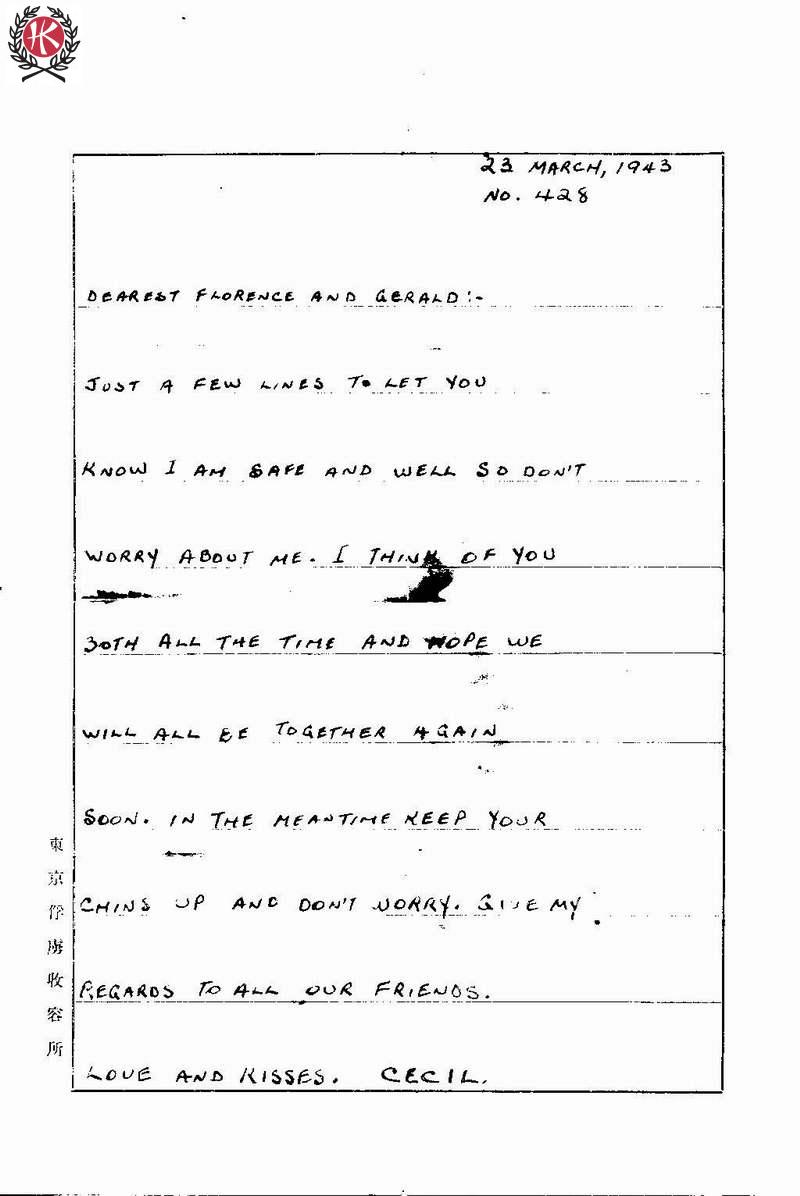 HK
23 MARCH, 1943
NO. 428
DEAREST FLORENCE AND GERALD:-
JUST A FEW LINES TO LET YOU
KNOW I AM SAFE AND WELL SO DON'T
WORRY ABOUT ME. I THINK OF YOU
BOTH ALL THE TIME AND HOPE WE
WILL ALL BE TOGETHER AGAIN
SOON. IN THE MEANTIME KEEP YOUR
CHINS UP AND DON'T WORRY. GIVE MY
REGARDS TO ALL OUR FRIENDS.
LOVE AND KISSES. CECIL.
東京俘虜收容所